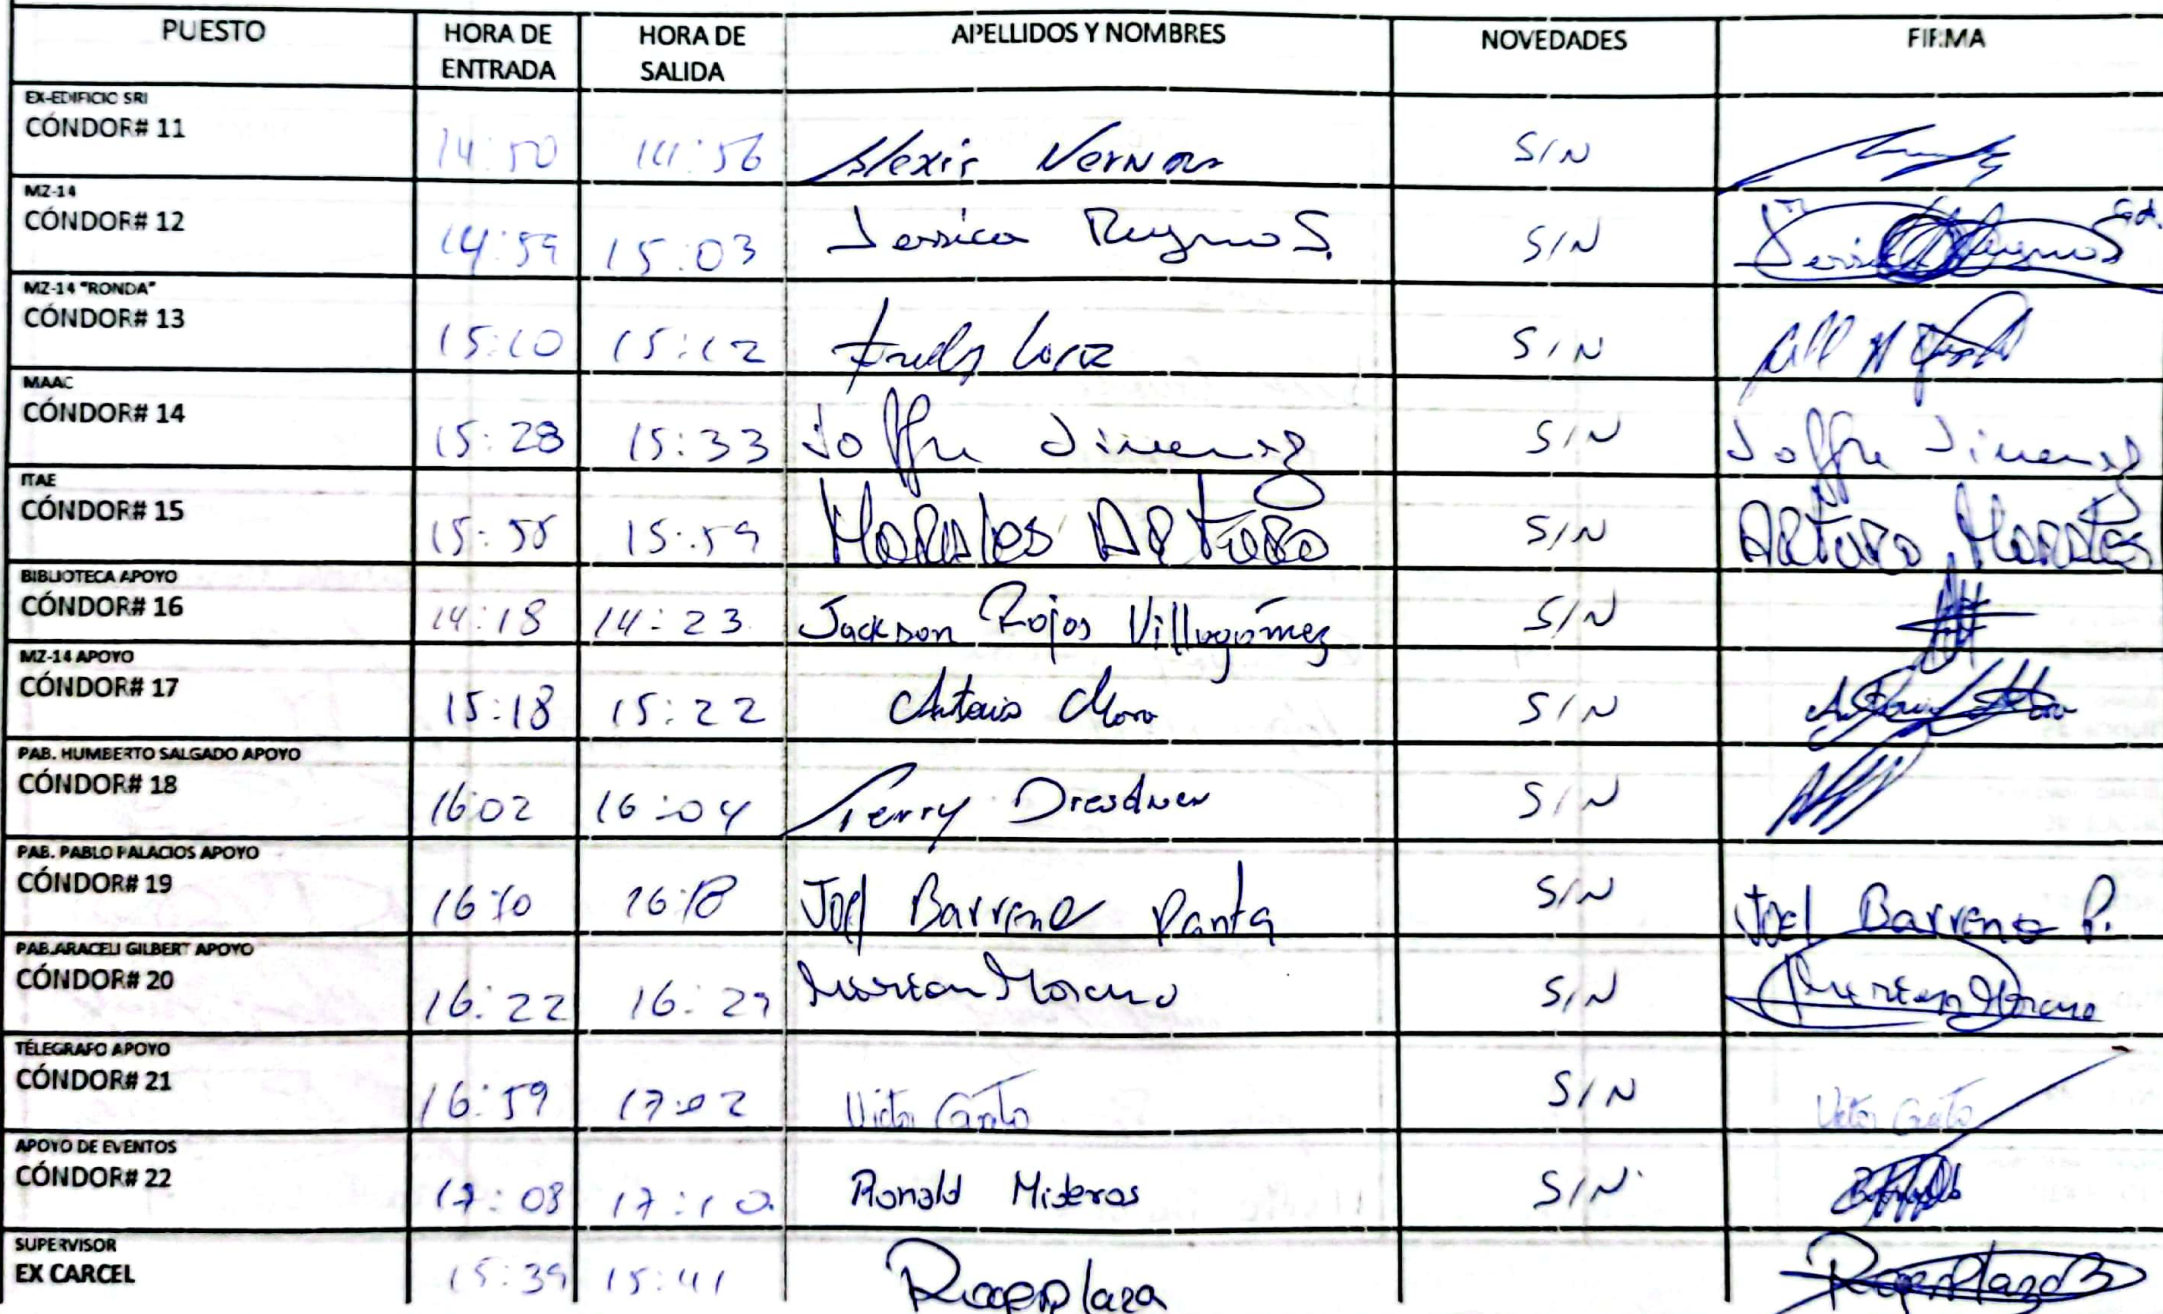 PUESTO HORA DE ENTRADA HORA DE SALIDA APELLIDOS Y NOMBRES NOVEDADES FIRMA
EX-EDIFICIO SRI
CÓNDOR# 11 14:50 14:56 Alexis S/N
MZ-14
CÓNDOR# 12 14:59 15:03 Jessica Reyno S. S/N
MZ-14 "RONDA"
CÓNDOR# 13 15:10 15:12 S/N
MAAC
CÓNDOR# 14 15:28 15:33 Joffre Jimenez S/N Joffre Jimenez
ITAE
CÓNDOR# 15 15:55 15:59 Morales Arturo S/N Arturo Morales
BIBLIOTECA APOYO
CÓNDOR# 16 14:18 14:23 Jackson Rojas Villagómez S/N
MZ-14 APOYO
CÓNDOR# 17 15:18 15:22 Antonio Mora S/N
PAB. HUMBERTO SALGADO APOYO
CÓNDOR# 18 16:02 16:04 Terry Dresdner S/N
PAB. PABLO PALACIOS APOYO
CÓNDOR# 19 16:10 16:18 Joel Barreno Panta S/N Joel Barreno P.
PAB.ARACELI GILBERT APOYO
CÓNDOR# 20 16:22 16:29 Moreno S/N Moreno
TÉLEGRAFO APOYO
CÓNDOR# 21 16:59 17:02 Victor S/N Victor
APOYO DE EVENTOS
CÓNDOR# 22 17:08 17:10 Ronald Mideros S/N
SUPERVISOR
EX CARCEL 15:39 15:41 Roger Plaza Roger Plaza B